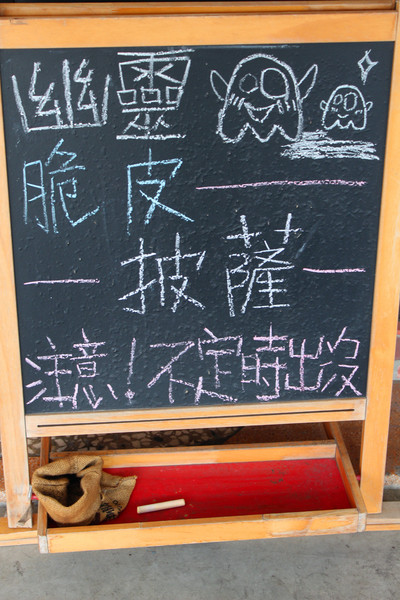 幽靈
脆皮
披薩
注意!不定時出沒